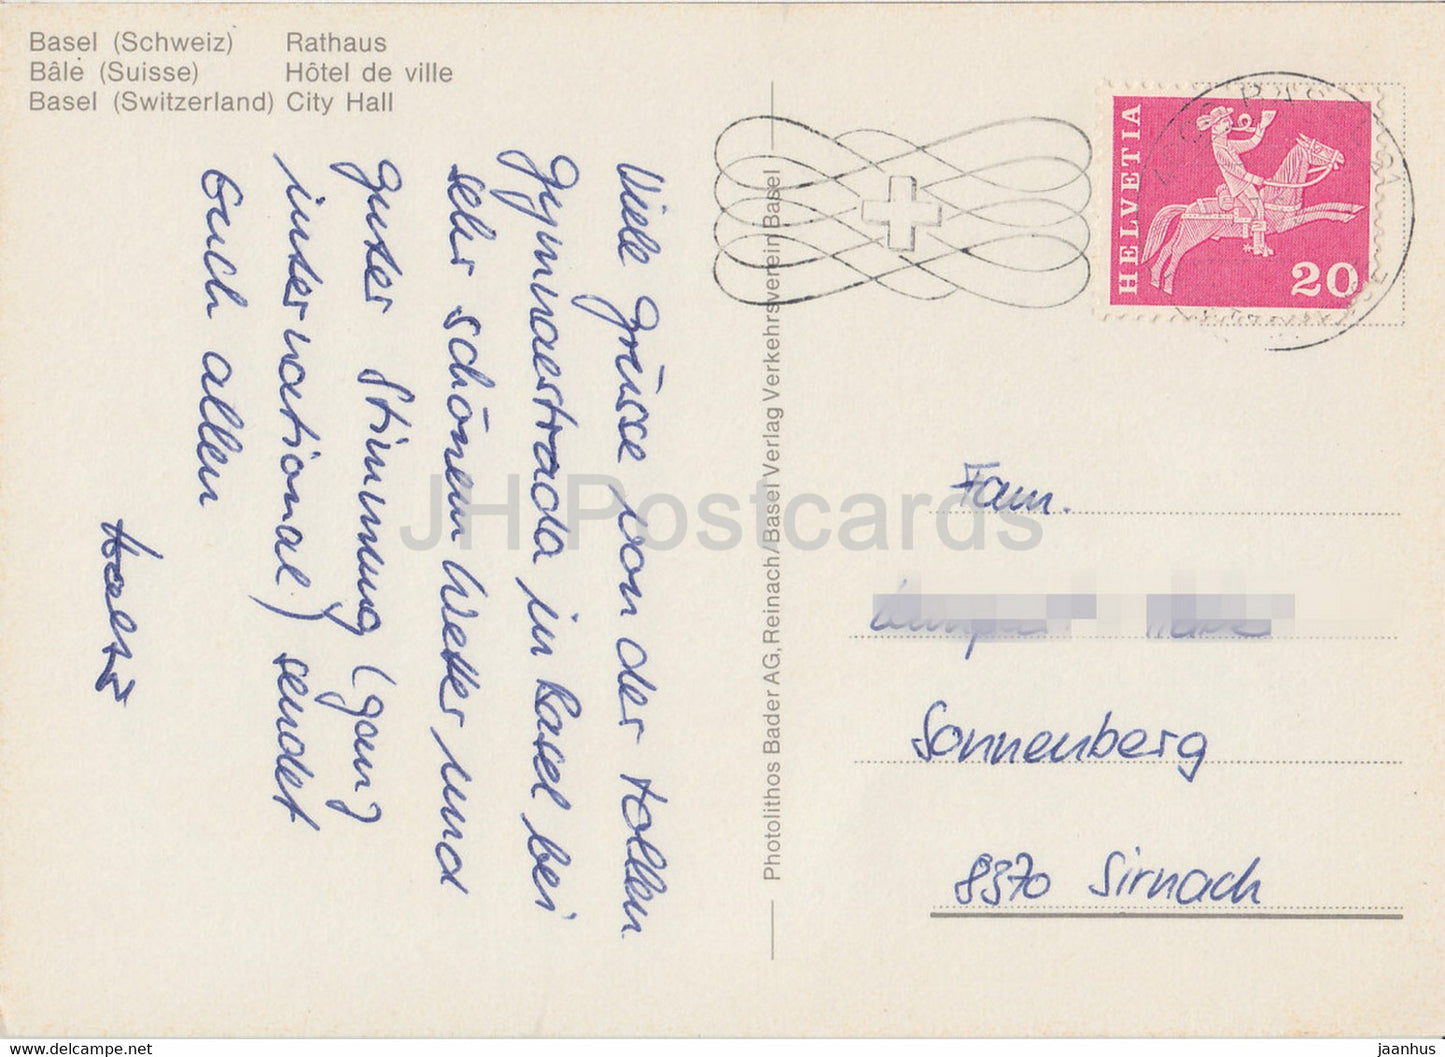 Basel (Schweiz) Rathaus
Bâle (Suisse) Hôtel de ville
Basel (Switzerland) City Hall
Viele Grüsse von der tollen
Gymnaestrada in Basel bei
sehr schönem Wetter und
guter Stimmung (ganz
international) sendet
Euch allen
Photolithos Bader AG, Reinach/Basel Verlag Verkehrsverein Basel
HELVETIA
20
Fam.
Sonnenberg
8370 Sirnach
JH Postcards
https://www.hippostcard.com/store/jhpostcards
jaanhus